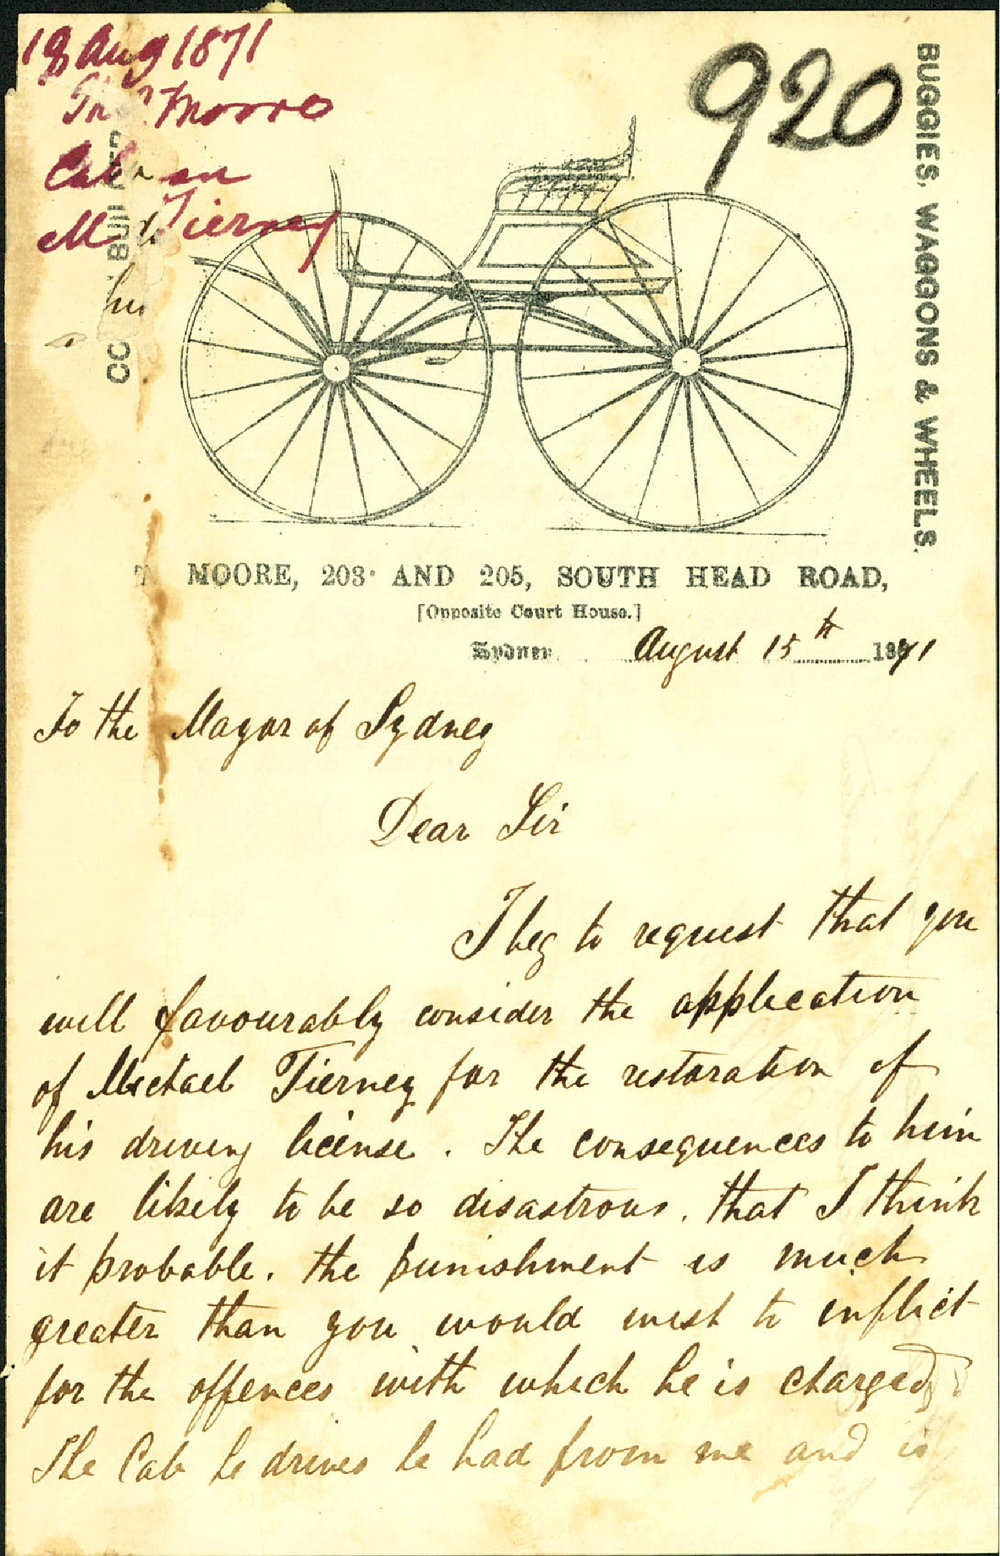 18 Aug 1871
Moore
920
Tierney
BUGGIES, WAGGONS & WHEELS.
MOORE, 203 AND 205, SOUTH HEAD ROAD,
[Opposite Court House.]
Sydney August 15th 1871
To the Mayor of Sydney
Dear Sir
I beg to request that you
will favourably consider the application
of Michael Tierney for the restoration of
his driving license. The consequences to him
are likely to be so disastrous. that I think
it probable. the punishment is much
greater than you would wish to inflict
for the offences with which he is charged
The Cab he drives he had from me and is